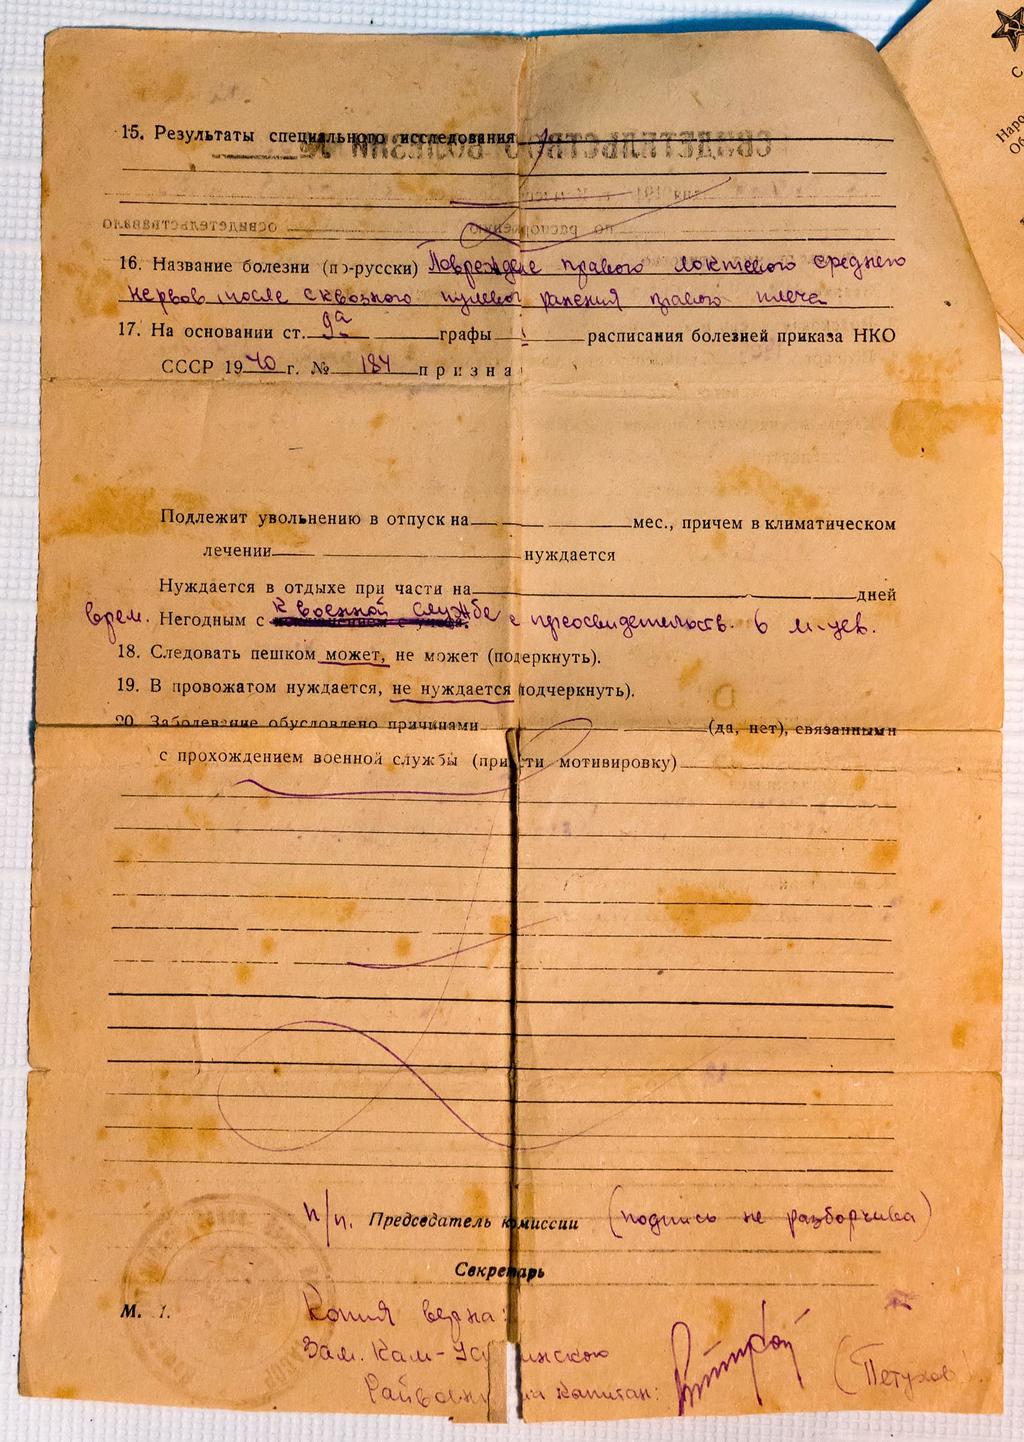 15. Результаты специального исследования
СВИДЕТЕЛЬСТВО О БОЛЕЗНИ №
по распоряжению
освидетельствовано
16. Название болезни (по-русски) Поврежде правого локтевого среднего
нервов после сквозного пулевог ранения правого плеча
17. На основании ст. 9а графы I расписания болезней приказа НКО
СССР 1940 г. № 184 призна
Подлежит увольнению в отпуск на мес., причем в климатическом
лечении нуждается
Нуждается в отдыхе при части на дней
врем. Негодным с к военной службе с преосвидетельств. 6 м-цев.
18. Следовать пешком может, не может (подеркнуть).
19. В провожатом нуждается, не нуждается (подчеркнуть).
20. Заболевание обусловлено причинами (да, нет), связанными
с прохождением военной службы (привести мотивировку)
п/п. Председатель комиссии (подпись не разборчива)
Секретарь
М. П.
Копия верна:
Зам. Кам-Ус инского
Райвоен м капитан: (Петухов)
С
Наро
Об